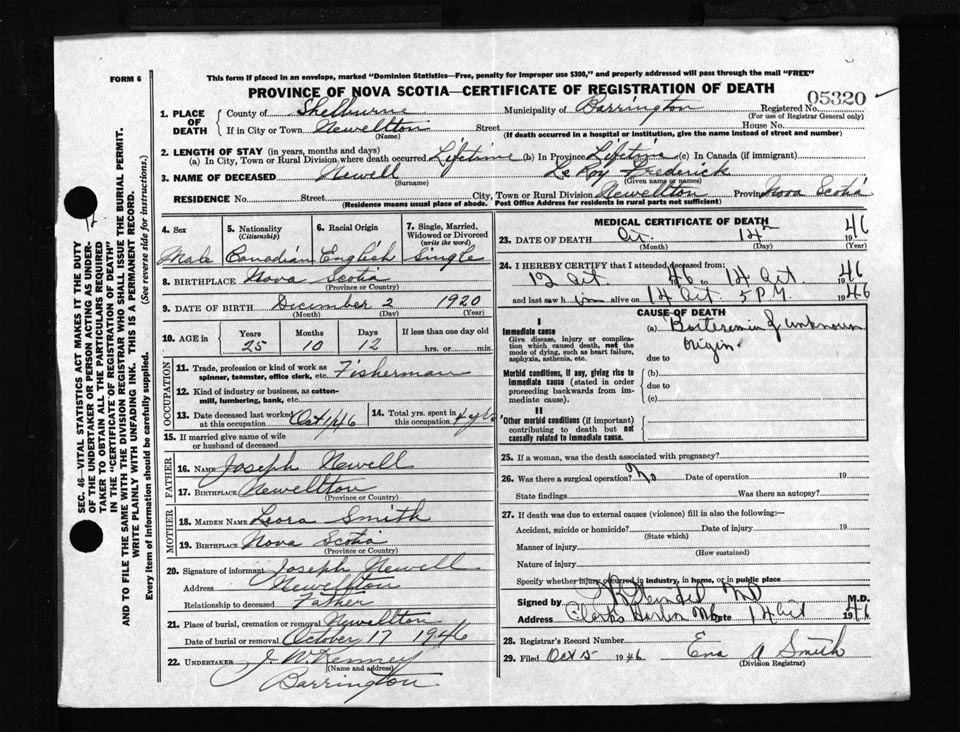 FORM 6
This form if placed in an envelope, marked "Dominion Statistics—Free, penalty for improper use $300," and properly addressed will pass through the mail "FREE"
PROVINCE OF NOVA SCOTIA—CERTIFICATE OF REGISTRATION OF DEATH
1. PLACE OF DEATH County of Shelburne Municipality of Barrington Registered No. 05320
(For use of Registrar General only)
If in City or Town Newellton Street House No.
(Name) (If death occurred in a hospital or institution, give the name instead of street and number)
2. LENGTH OF STAY (in years, months and days)
(a) In City, Town or Rural Division where death occurred Lifetime (b) In Province Lifetime (c) In Canada (if immigrant)
3. NAME OF DECEASED Newell LeRoy Frederick
(Surname) (Given name or names)
RESIDENCE No. Street City, Town or Rural Division Newellton Province Nova Scotia
(Residence means usual place of abode. Post Office Address for residents in rural parts not sufficient)
4. Sex 5. Nationality (Citizenship) 6. Racial Origin 7. Single, Married, Widowed or Divorced (write the word)
Male Canadian English Single
8. BIRTHPLACE Nova Scotia
(Province or Country)
9. DATE OF BIRTH December 2 1920
(Month) (Day) (Year)
10. AGE in Years Months Days If less than one day old
25 10 12 hrs. or min.
OCCUPATION
11. Trade, profession or kind of work as spinner, teamster, office clerk, etc. Fisherman
12. Kind of industry or business, as cotton-mill, lumbering, bank, etc.
13. Date deceased last worked at this occupation Oct 1/46 14. Total yrs. spent in this occupation
15. If married give name of wife or husband of deceased
FATHER
16. NAME Joseph Newell
17. BIRTHPLACE Newellton
(Province or Country)
MOTHER
18. MAIDEN NAME Leora Smith
19. BIRTHPLACE Nova Scotia
(Province or Country)
20. Signature of informant Joseph Newell
Address Newellton
Relationship to deceased Father
21. Place of burial, cremation or removal Newellton
Date of burial or removal October 17 1946
22. UNDERTAKER J. W. Kenney
(Name and address)
Barrington
MEDICAL CERTIFICATE OF DEATH
23. DATE OF DEATH Oct. 14th 1946
(Month) (Day) (Year)
24. I HEREBY CERTIFY that I attended deceased from:
12 Oct. 46 to 14 Oct 1946
and last saw him alive on 14 Oct. 5 P.M. 1946
CAUSE OF DEATH
I
Immediate cause
Give disease, injury or complication which caused death, not the mode of dying, such as heart failure, asphyxia, asthenia, etc.
(a) of unknown
origin.
due to
Morbid conditions, if any, giving rise to immediate cause (stated in order proceeding backwards from immediate cause).
(b)
due to
(c)
II
Other morbid conditions (if important) contributing to death but not causally related to immediate cause.
25. If a woman, was the death associated with pregnancy?
26. Was there a surgical operation? No Date of operation 19
State findings Was there an autopsy?
27. If death was due to external causes (violence) fill in also the following:—
Accident, suicide or homicide? Date of injury 19
(State which)
Manner of injury
(How sustained)
Nature of injury
Specify whether injury occurred in industry, in home, or in public place
Signed by MD M.D.
Address Clarks Harbor NS Date 14 Oct 1946
28. Registrar's Record Number
29. Filed Oct 15 1946 Eva A Smith
(Division Registrar)
SEC. 46—VITAL STATISTICS ACT MAKES IT THE DUTY
OF THE UNDERTAKER OR PERSON ACTING AS UNDERTAKER
TO OBTAIN ALL THE PARTICULARS REQUIRED
IN THE "CERTIFICATE OF REGISTRATION OF DEATH"
AND TO FILE THE SAME WITH THE DIVISION REGISTRAR WHO SHALL ISSUE THE BURIAL PERMIT.
WRITE PLAINLY WITH UNFADING INK. THIS IS A PERMANENT RECORD.
Every item of information should be carefully supplied. (See reverse side for instructions.)